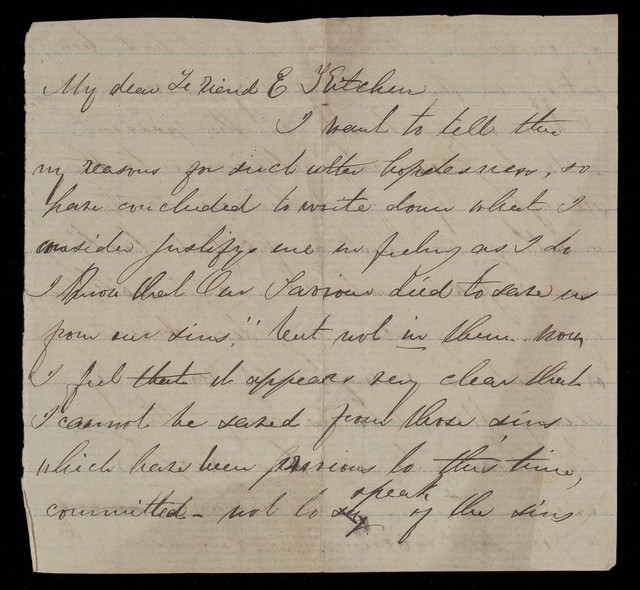 My dear Friend E Kitchen
I want to tell thee
my reasons for such utter hopelessness, so
have concluded to write down what I
consider justifys me in feeling as I do
I know that Our Saviour died to save us
from our sins," but not in them. now
I feel that it appears very clear that
I cannot be saved from those sins
which have been previous to this time,
committed - not to say speak of the sins